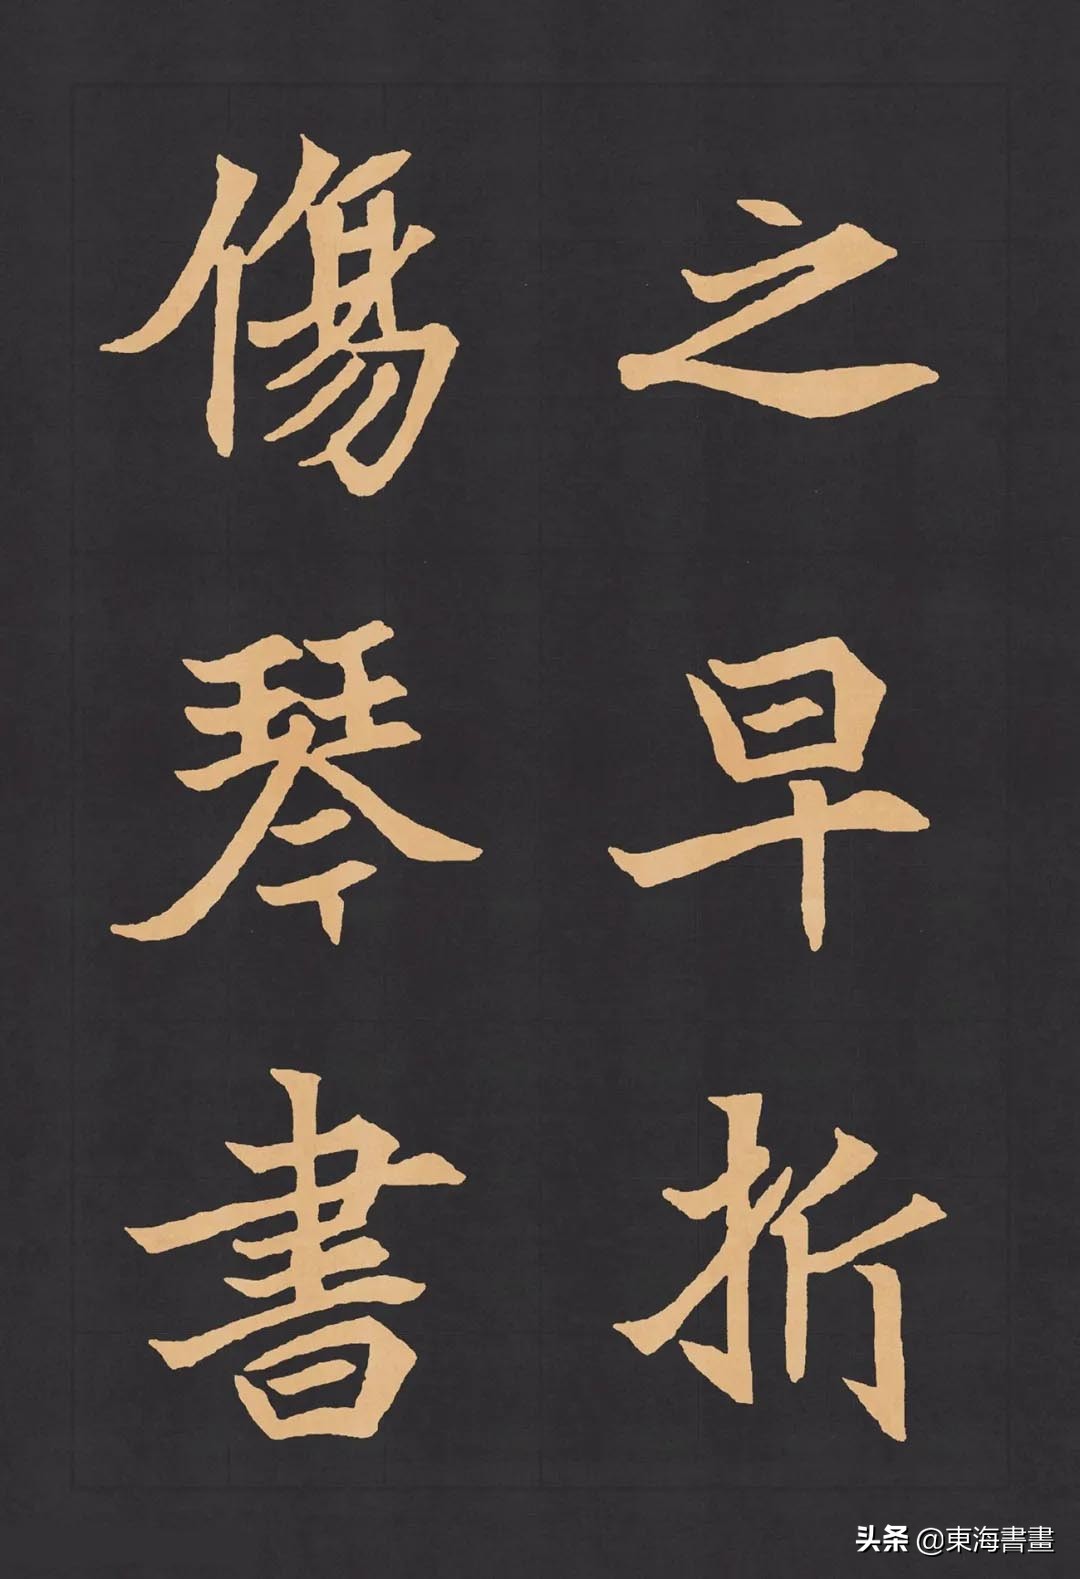 之早折
傷琴書
头条 @東海書畫